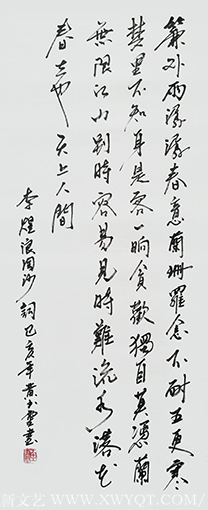 簾外雨潺潺春意蘭珊羅衾不耐五更寒
夢里不知身是客一晌貪歡獨自莫憑蘭
無限江山別時容易見時難流水落花
春去也天上人間
李煜浪淘沙詞己亥年黄書
新文艺 / WWW.XWYQT.COM /